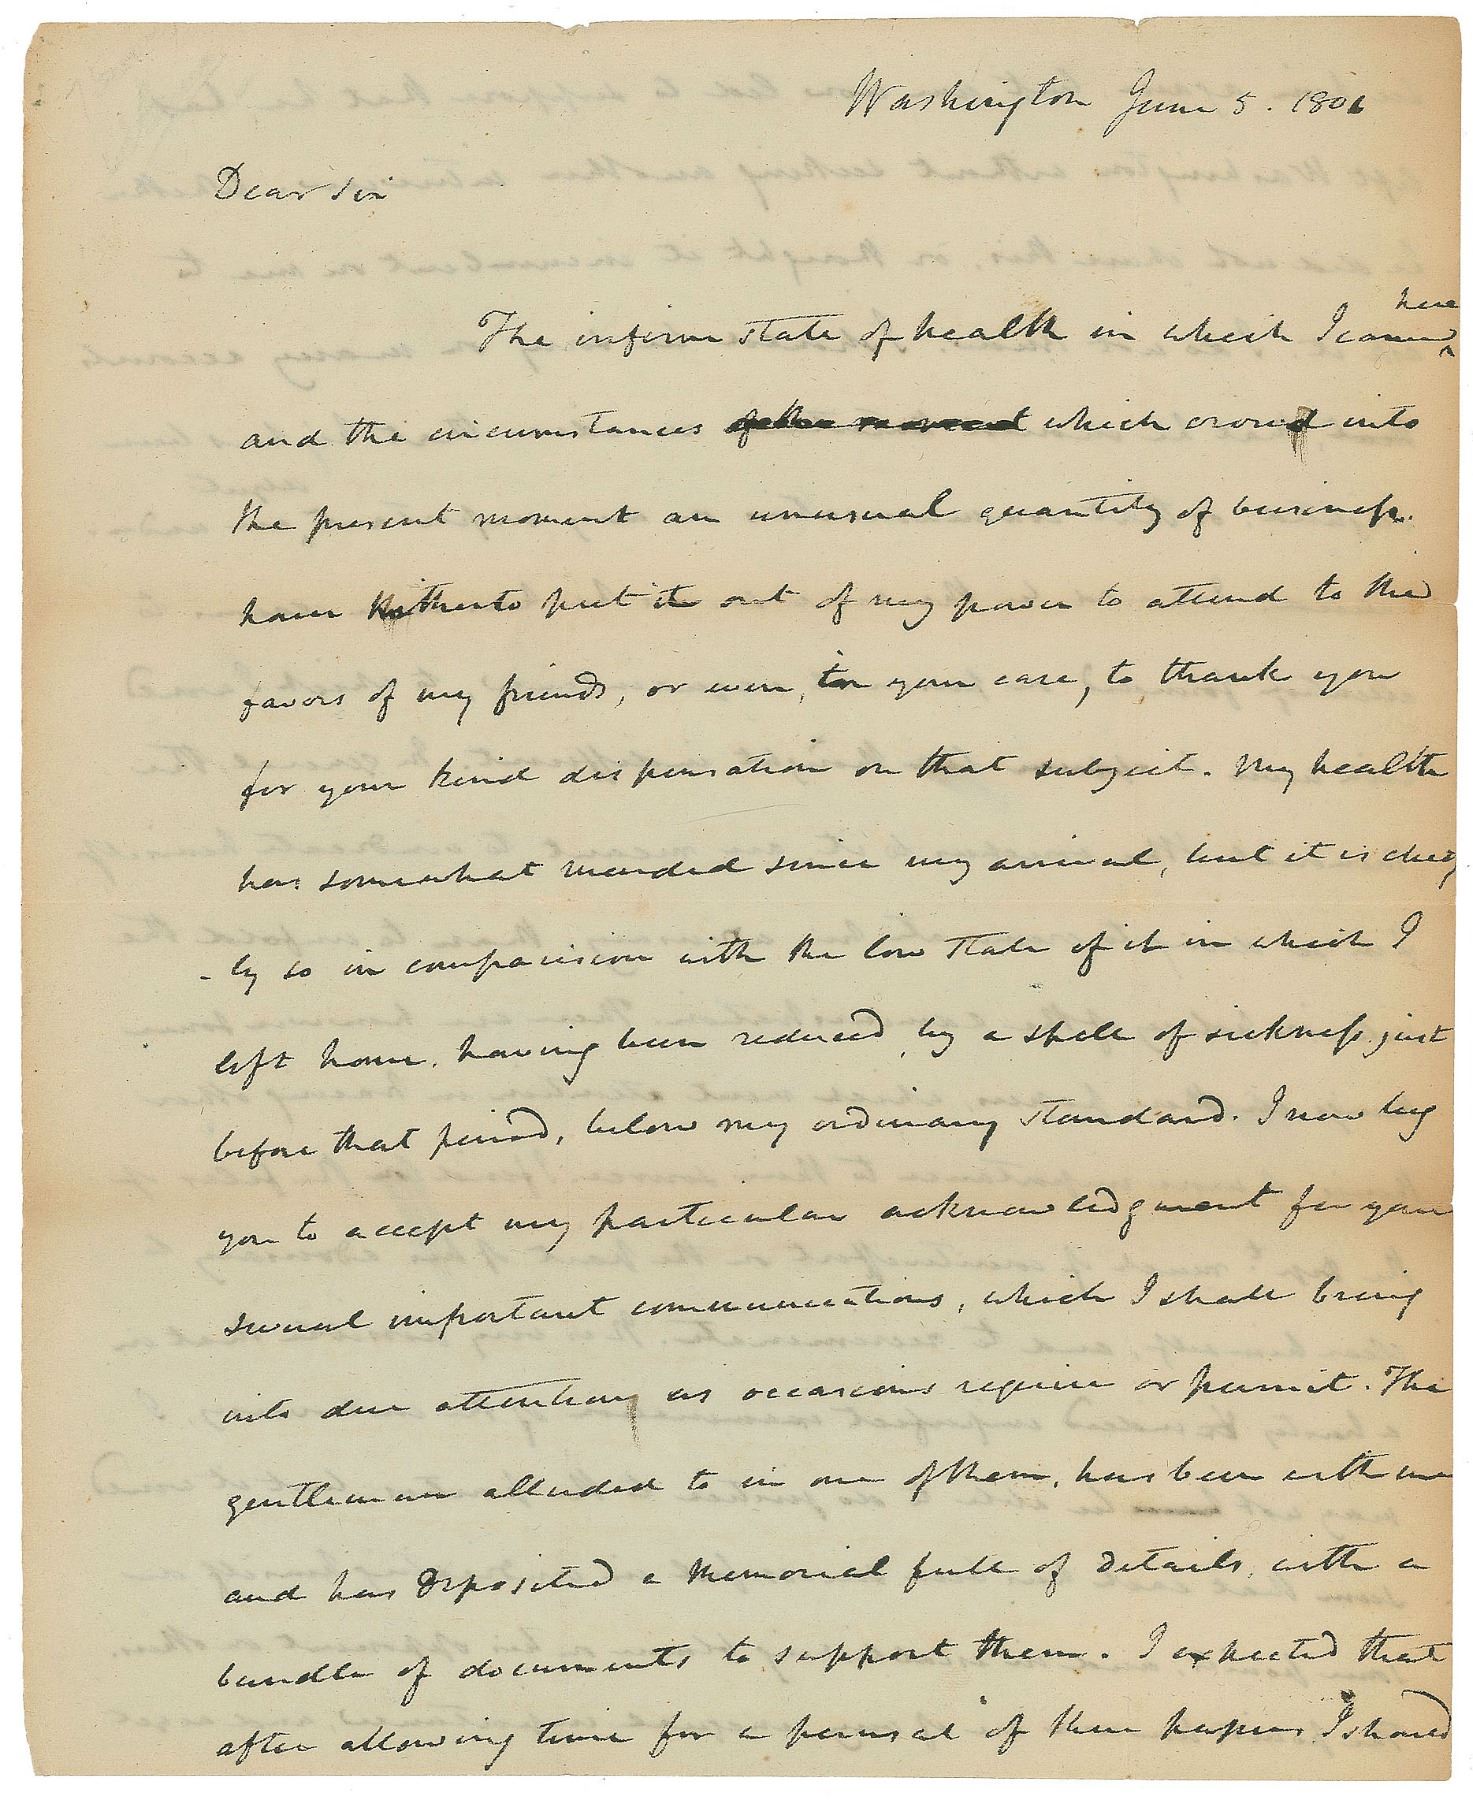 Washington June 5. 1801
Dear Sir
here
The infirm state of health in which I came
and the circumstances of the moment which crowd into
the present moment an unusual quantity of business.
have hitherto put it out of my power to attend to the
favors of my friends, or even, in your case, to thank you
for your kind dispensation on that subject. My health
has somewhat mended since my arrival, but it is chief
-ly so in comparision with the low state of it in which I
left home. having been reduced, by a spell of sickness just
before that period, below my ordinary standard. I now beg
you to accept my particular acknowledgment for your
several important communications, which I shall bring
into due attention as occasions require or permit. The
gentleman alluded to in one of them, has been with me
and has deposited a memorial full of details, with a
bundle of documents to support them. I expected that
after allowing time for a perusal of these papers I should